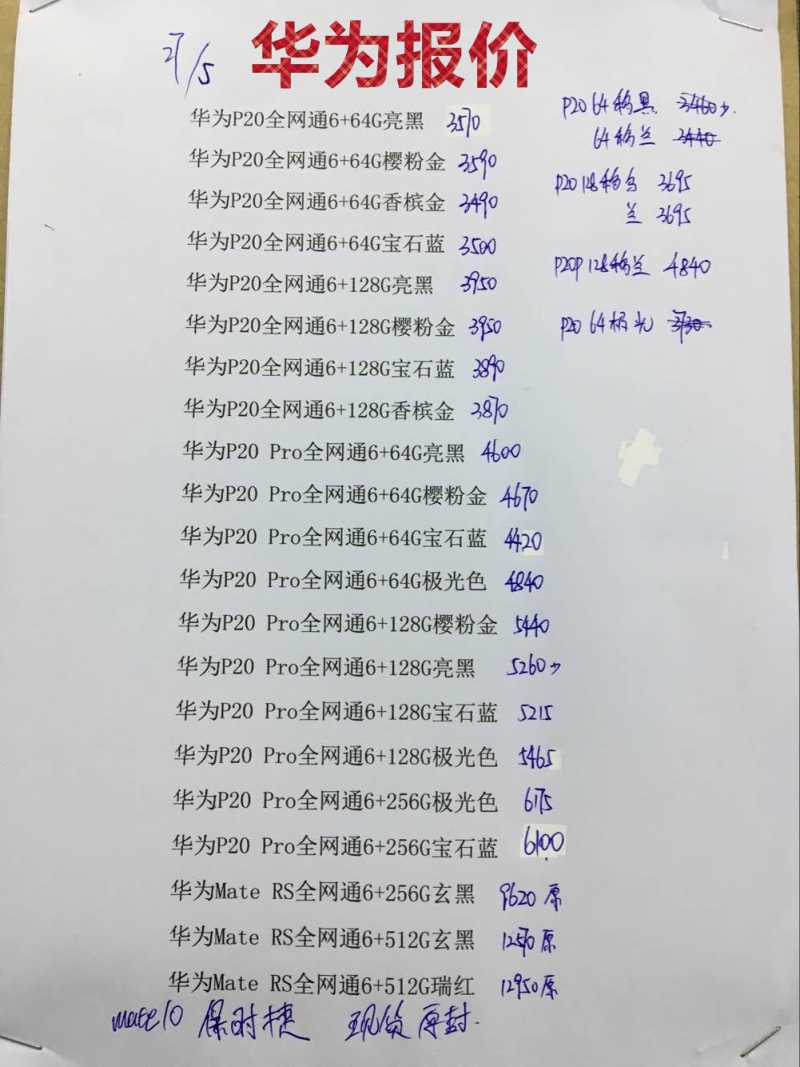 华为报价
27/5
华为P20全网通6+64G亮黑 3570
华为P20全网通6+64G樱粉金 3590
华为P20全网通6+64G香槟金 3490
华为P20全网通6+64G宝石蓝 3500
华为P20全网通6+128G亮黑 3950
华为P20全网通6+128G樱粉金 3950
华为P20全网通6+128G宝石蓝 3890
华为P20全网通6+128G香槟金 3870
华为P20 Pro全网通6+64G亮黑 4600
华为P20 Pro全网通6+64G樱粉金 4670
华为P20 Pro全网通6+64G宝石蓝 4420
华为P20 Pro全网通6+64G极光色 4840
华为P20 Pro全网通6+128G樱粉金 5440
华为P20 Pro全网通6+128G亮黑 5260少
华为P20 Pro全网通6+128G宝石蓝 5215
华为P20 Pro全网通6+128G极光色 5465
华为P20 Pro全网通6+256G极光色 6175
华为P20 Pro全网通6+256G宝石蓝 6100
华为Mate RS全网通6+256G玄黑 9620原
华为Mate RS全网通6+512G玄黑 原
华为Mate RS全网通6+512G瑞红 12950原
mate10 保时捷 现货原封.
P20 64移黑 3460少.
64移兰 3440
P20 128移 3695
兰 3695
P20P 128移兰 4840
P20 64极光 3730